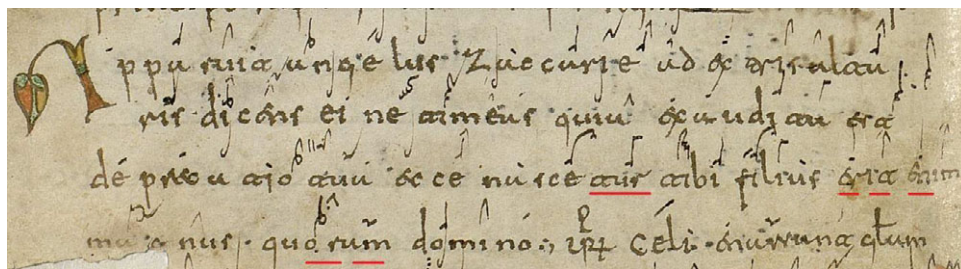 Apparuit angelus Zaccarie ad extris alta
ris dicens ei ne timeas quia exaudita est
deprecatio tua ecce nascetur tibi filius erit enim
magnus quoram domino Celi enarrant